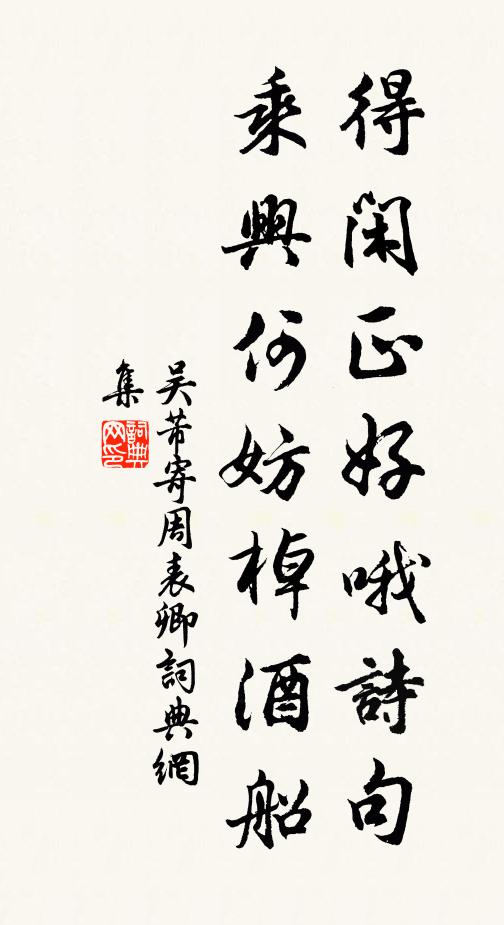 得閑正好哦詩句
乘興何妨棹酒船
吳芾寄周表卿詞典網
集
詞典
网印